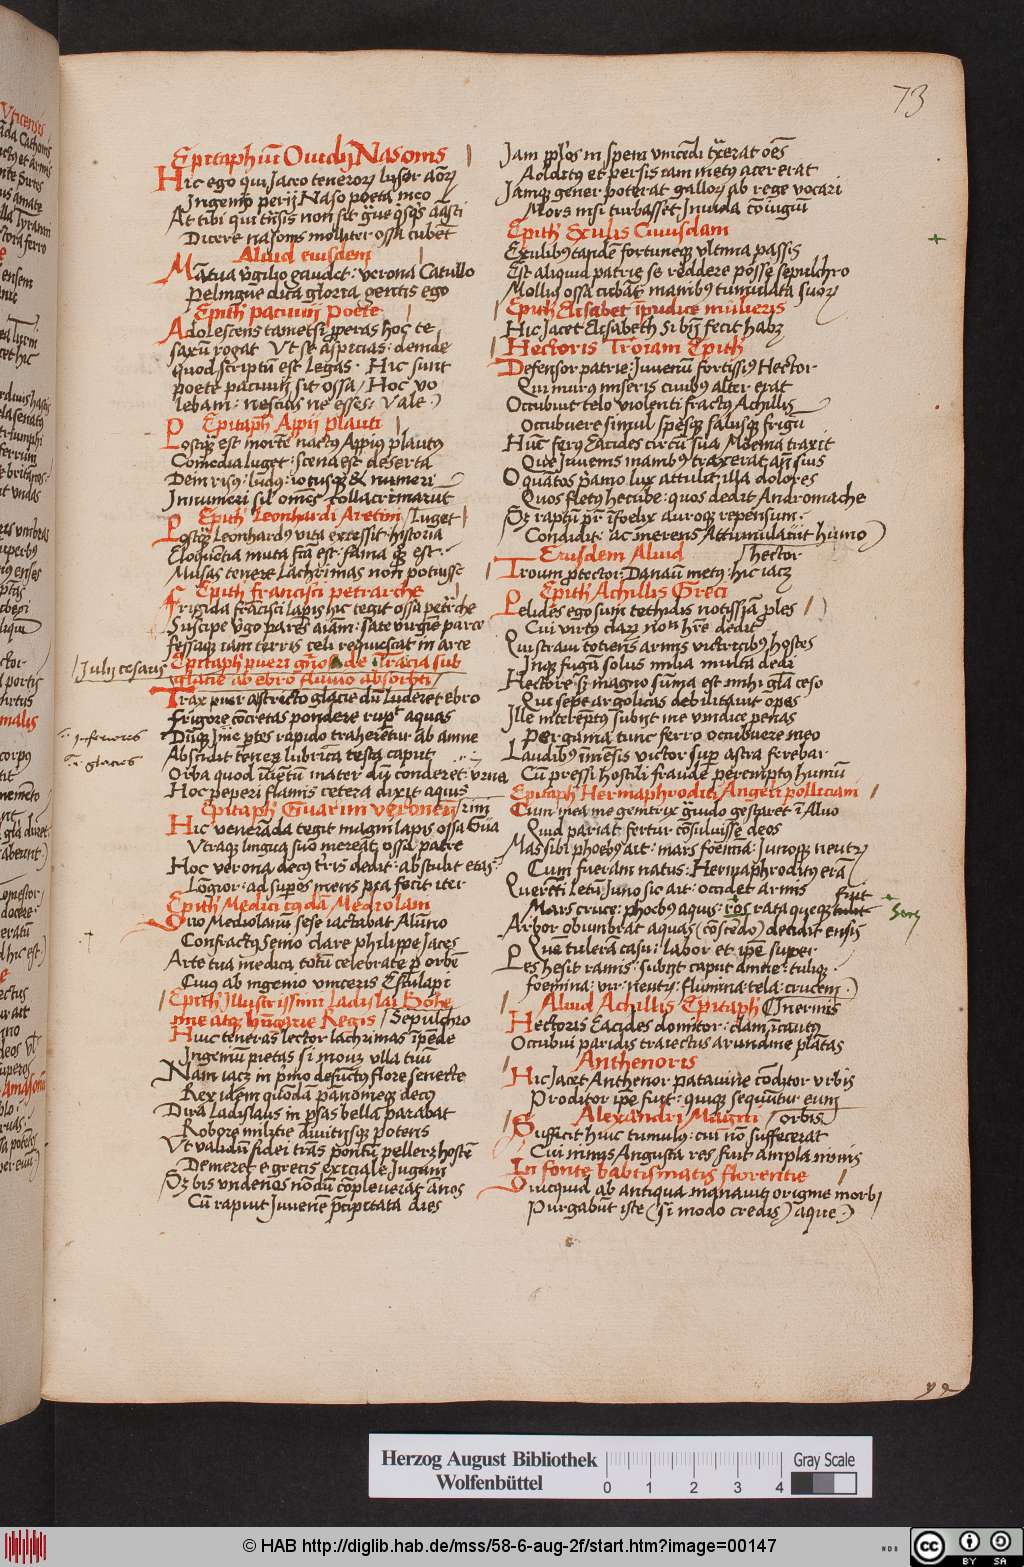 73
Epitaphiū Ouidij Nasonis
Hic ego qui Jaceo teneroꝝ lusor aōꝝ
Jngenio perij Naso poeta meo
At tibi qui trāsis non sit gue qsqs amasti
Dicere nasonis molliter ossa cubēt
Aliud eiusdem
Mātua vgilio gaudet: verona Catullo
Peligne dicar gloria gentis ego
Epith pacuuij poete
Adolescens tametsi pperas hoc te
saxū rogat Vt se aspicias: deinde
quod scriptū est legas. Hic sunt
poete pacuuij sit ossa / Hoc vo
lebam: nescius ne esses: Vale .)
Epitaph Appij plauti
Postqȝ est morte nactus Appius plautus
Comedia luget: scena est deserta
Dein risus: ludus: iocusqȝ & numeri
Jnnumeri sil omēs collacrimarūt
Epith Leonhardi Aretini / luget
Postqȝ Leonhardus vita excessit: historia
Eloquentia muta fcā est: fama qȝ est.
Musas tenere Lachrimas non potuisse
Epith francisci petrarche
Frigida francisci lapis hic tegit ossa petrche
Suscipe vgo parēs aīam: sate virgine parce
fessaqȝ iam terris celi requiescat in arce
/ Julij cesaris
Epitaph pueri
de Tracia sub
glacie ab ebro fluuio absorbti /
Trax puer astricto glacie dū luderet ebro
Frigore cōcretas pondere rupit aquas
inferiores
Dūqȝ ime ptes rapido traherentur ab amne
glacies
Abscidit tenerū lubrica testa caput
Orba quod inuētum mater dū conderet vrna
Hoc peperi flāmis cetera dixit aquis
Epitaph Guarini veronen / rini
Hic venerāda tegit magni lapis ossa Gua
Vtraqȝ lingua suo mereat ossa patre
Hoc verona decus tris dedit: abstulit etas
Lōgior: ad supos mens pia fecit iter
Epith Medici cuiusdā Mediolani
Quo Mediolanū sese iactabat Alūno
Confractus senio clare philippe Jaces
Arte tua medica totū celebrate p orbē
Cuius ab ingenio vinceris Esculapi
Epith Illustrissimi Ladislai Bohe
mie atqȝ hungarie Regis / Sepulchro
Huic teneras lector lachrimas īpēde
Jngeniū pietas si mouet vlla tuū
Nam iacet in pmo defunctus flore senecte
Rex idem quōdā pānoniqeȝ decus
Dira Ladislaus in psas bella parabat
Robore militie diuitijsqȝ potens
Vt validū fidei trās pontū pelleret hostē
Demeret e grecis exiciale Jugum
Sȝ bis vndenos nōdū cōpleuerat ānos
Cū rapuit Juuenē pcipitata dies
Jam pplos in spem vincēdi txerat oēs
Aoddtus et persis iam metus acer erat
Jamqȝ gener poterat galloꝝ ab rege vocari
Mors nisi turbasset Jnuida cōiugiū
Epith Exulis Cuiusdam
Exulibus tandē fortuneqȝ vltima passis
Est aliquid patrie se reddere posse sepulchro
Mollius ossa cubāt manibus tumulata suoꝝ
Epith Elisabet īpudice mulieris
Hic Jacet Elisabeth si bn fecit habȝ
Hectoris Troiani Epith
Defensor patrie: Juuenū fortissimus Hector
Qui murus miseris ciuibus alter erat
Occubuit telo violenti fractus Achillis
Occubuere simul spesqȝ salusqȝ frigū
Hūc ferus Eacides circū sua Moenia traxit
Que Juuenis manibus traxerat añ suis
O quātos pamo lux attulit illa dolores
Quos fletus hecube: quos dedit Andromache
Sȝ raptū pr īfoelix auroqȝ repensum
Condidit: ac merens Accumulauit humo )
Eiusdem Aliud / hector
Troum ptector: Danaū metus: hic iacȝ
Epith Achillis Greci
Pelides ego sum tethidis notissima ples
Cui virtus claꝝ nomē hre dedit
Qui straui totiens armis victricibus hostes
Jnqȝ fugā solus milia multa dedi
Hectore sȝ magno sūma est mihi gla ceso
Qui sepe argolicas debilitauit opes
Jlle interēpto subijt me vindice penas
Pergama tunc ferro occubuere meo
Laudibus īmēsis victor sup astra ferebar
Cū pressi hostili fraude peremptus humū
Epitaph Hermaphroditi Angeli policiani
Cum mea me genitrix guido gestaret ī Aluo
Quid pariat: fertur cōsuluisse deos
Mas sibi phoebus ait: mars foemīa: Junoqȝ neutꝝ
Cum fueram natus: Hermaphroditus erā
Querēti letum: Juno sic ait: occidet armis
fuit
Mars cruce: phoebus aquis: rōs rata queqȝ
Arbor obumbrat aquas (cōscēdo) decidit ensis
Quē tulerā casu: labor et ipse super
Pes hesit ramis: subijt caput amne: tuliqȝ
foemina: vir: neutꝝ: flumina: tela: crucem .)
Aliud Achillis Epitaph / Jnermis
Hectoris Eacides domitor: clam: īcautus
Occubui paridis traiectus arundine plātas
Anthenoris
Hic Jacet Anthenor patauine cōditor vrbis
Proditor ipe fuit: quiqȝ sequūtur eum
Alexandri Magni / orbis
Sufficit huic tumulus: cui nō suffecerat
Cui minus Angusta res fuit ampla nimis
In fonte babtismatis florentie
Quicquid ab antiqua manauit origine morbi
Purgabūt iste (si modo credis) aque .)
Herzog August Bibliothek
Wolfenbüttel
0 1 2 3 4
Gray Scale
© HAB http://diglib.hab.de/mss/58-6-aug-2f/start.htm?image=00147
cc BY SA